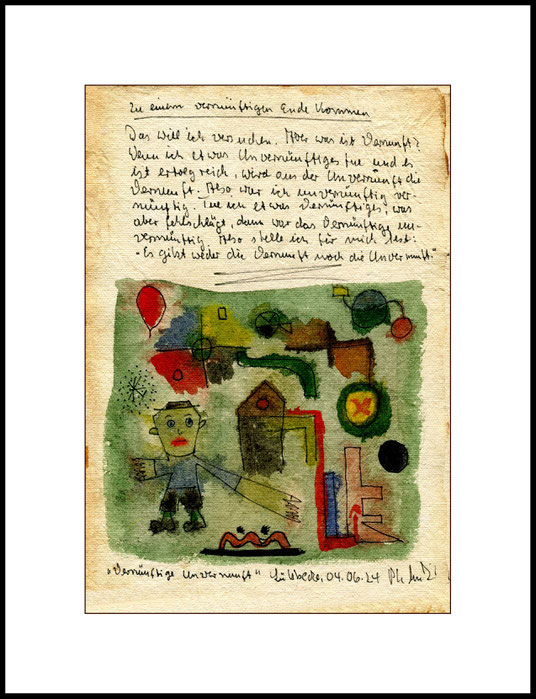 Zu einem vernünftigen Ende kommen
Das will ich versuchen. Aber was ist Vernunft?
Wenn ich etwas Unvernünftiges tue und es
ist erfolgreich, wird aus der Unvernunft die
Vernunft. Also war ich unvernünftig ver-
nünftig. Tue ich etwas Vernünftiges, was
aber fehlschlägt, dann war das Vernünftige un-
vernünftig. Also stelle ich für mich fest:
"Es gibt weder die Vernunft noch die Unvernunft."
"Vernünftige Unvernunft" Lübbecke, 04.06.24